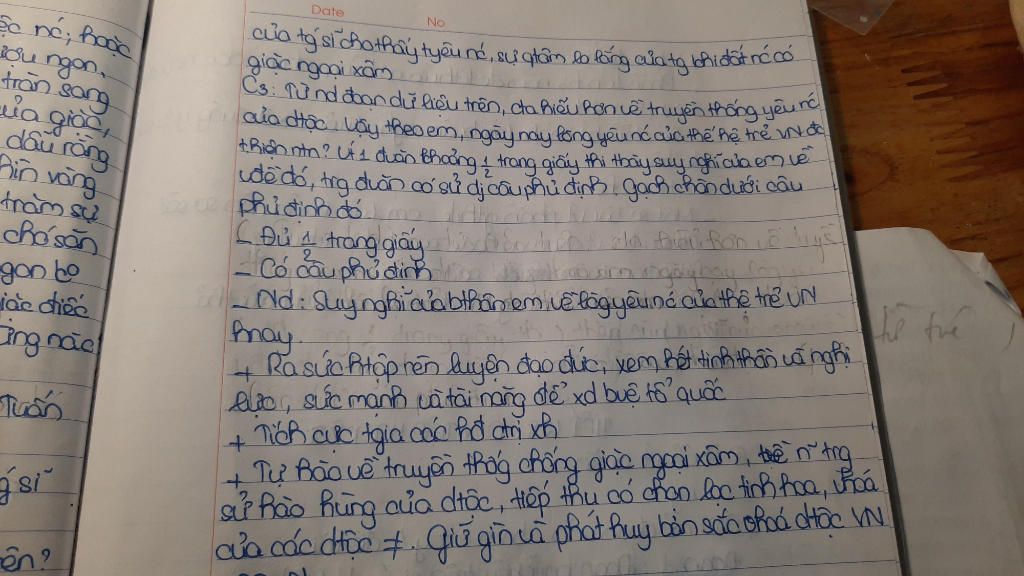 Date No
của tg sĩ cho thấy tyêu nc, sự qtâm lo lắng của tg khi đất nc có
giặc ngoại xâm
C3: Từ nd đoạn dữ liệu trên, cta hiểu hơn về truyền thống yêu nc
của dtộc. Vậy theo em, ngày nay lòng yêu nc của thế hệ trẻ VN đc
thiện ntn? Vt 1 đvăn khoảng 1/2 trang giấy thi thấy suy nghĩ của em về
vđề đó, trg đvăn có sử dị câu phủ định. Gạch chân dưới câu
phủ định đó
- Đủ 1/2 trang giấy
- Có câu phủ định
- Nd: Suy nghĩ của bthân em về lòg yêu nc của thệ trẻ VN
hnay.
+ Ra sức htập rèn luyện đạo đức, xem hết tinh thần và nghị
lực, sức mạnh và tài năng để xd bvệ tổ quốc
+ Tích cực tgia các hđ ctrị xh
+ Tự hào về truyền thốg chống giặc ngoại xâm, về n~ trg
sử hào hùng của dtộc, tiếp thu có chọn lọc tinh hoa, vhoá
của các dtộc ≠. Giữ gìn và phát huy bản sắc vhoá dtộc VN
ặc nc, hoặc
rượu ngon,
tràn sang
của giặc,
dẫu rằng
nghìn vàng
trăm sử
chó săn
ngon bo
giặc điếc
Tuấn
g sĩ
ên?